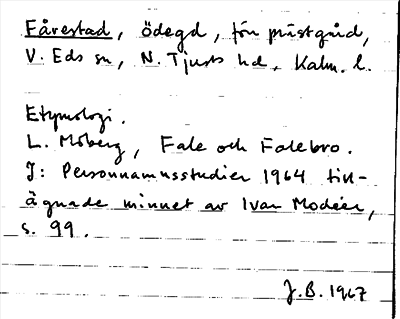 Fårestad, ödegd, förr prästgård,
V. Eds sn, N. Tjusts hd, Kalm. l.
Etymologi.
L. Moberg, Fale och Falebro.
J: Personnamnsstudier 1964 till-
ägnade minnet av Ivar Modéer,
s. 99.
J.B. 1967